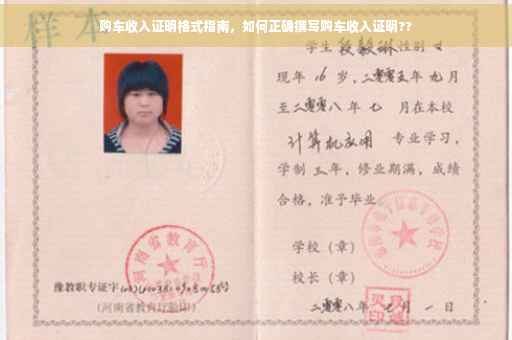 购车收入证明格式指南，如何正确撰写购车收入证明??
样本
学生 段毅琳 性别 女
现年 16 岁，二零零五年 九月
至二零零八年 七 月在本校
计算机应用 专业学习，
学制 三 年，修业期满，成绩
合格，准予毕业
学校（章）
校长（章）
二零零八年 七月 一 日
河南省教育厅
豫教职专证字
（河南省教育厅验印）